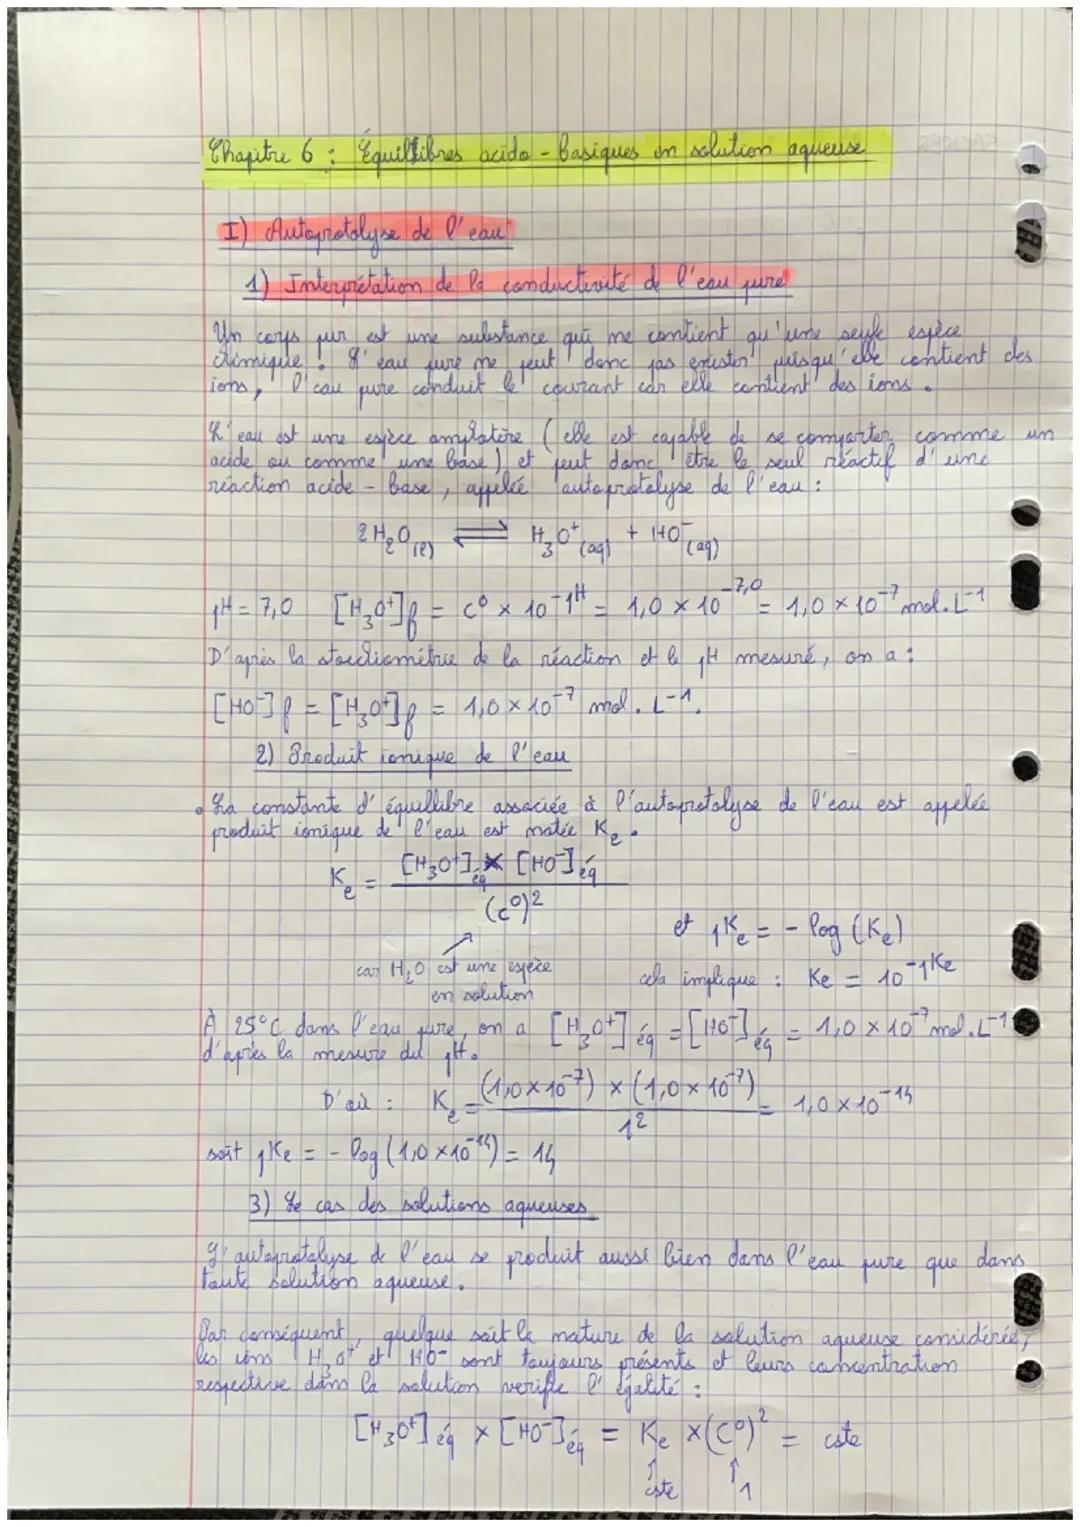 Chapitre 6 : Équilibres acido - basiques en solution aqueuse
I) Autoprotolyse de l'eau
1) Interprétation de la conductivité de l'eau pure
Un corps pur est une substance qui ne contient qu'une seule espèce
chimique. L'eau pure ne peut donc pas exister puisqu'elle contient des
ions, l'eau pure conduit le courant car elle contient des ions.
L'eau est une espèce amphotère (elle est capable de se comporter comme un
acide ou comme une base) et peut donc être le seul réactif d'une
réaction acide - base, appelée autoprotolyse de l'eau :
2H₂O(l) ⇌ H₃O⁺(aq) + HO⁻(aq)
pH = 7,0 [H₃O⁺]f = c⁰ × 10^-pH = 1,0 × 10^-7,0 = 1,0 × 10⁻⁷ mol.L⁻¹
D'après la stoechiométrie de la réaction et le pH mesuré, on a :
[HO⁻]f = [H₃O⁺]f = 1,0 × 10⁻⁷ mol.L⁻¹.
2) Produit ionique de l'eau
• La constante d'équilibre associée à l'autoprotolyse de l'eau est appelée
produit ionique de l'eau est notée Ke.
Ke = [H₃O⁺]éq × [HO⁻]éq / (c⁰)²
et pKe = - log (Ke)
car H₂O est une espèce
en solution
cela implique : Ke = 10^-pKe
À 25°C dans l'eau pure, on a [H₃O⁺]éq = [HO⁻]éq = 1,0 × 10⁻⁷ mol.L⁻¹
d'après la mesure du pH.
D'où : Ke = (1,0×10⁻⁷) × (1,0×10⁻⁷) / 1² = 1,0 × 10⁻¹⁴
soit pKe = - log (1,0×10⁻¹⁴) = 14
3) Le cas des solutions aqueuses
L'autoprotolyse de l'eau se produit aussi bien dans l'eau pure que dans
toute solution aqueuse.
Par conséquent, quelque soit la nature de la solution aqueuse considérée,
les ions H₃O⁺ et HO⁻ sont toujours présents et leurs concentration
respective dans la solution verifie l'égalité :
[H₃O⁺]éq × [HO⁻]éq = Ke × (C⁰)² = cste
↑ ↑
cste 1